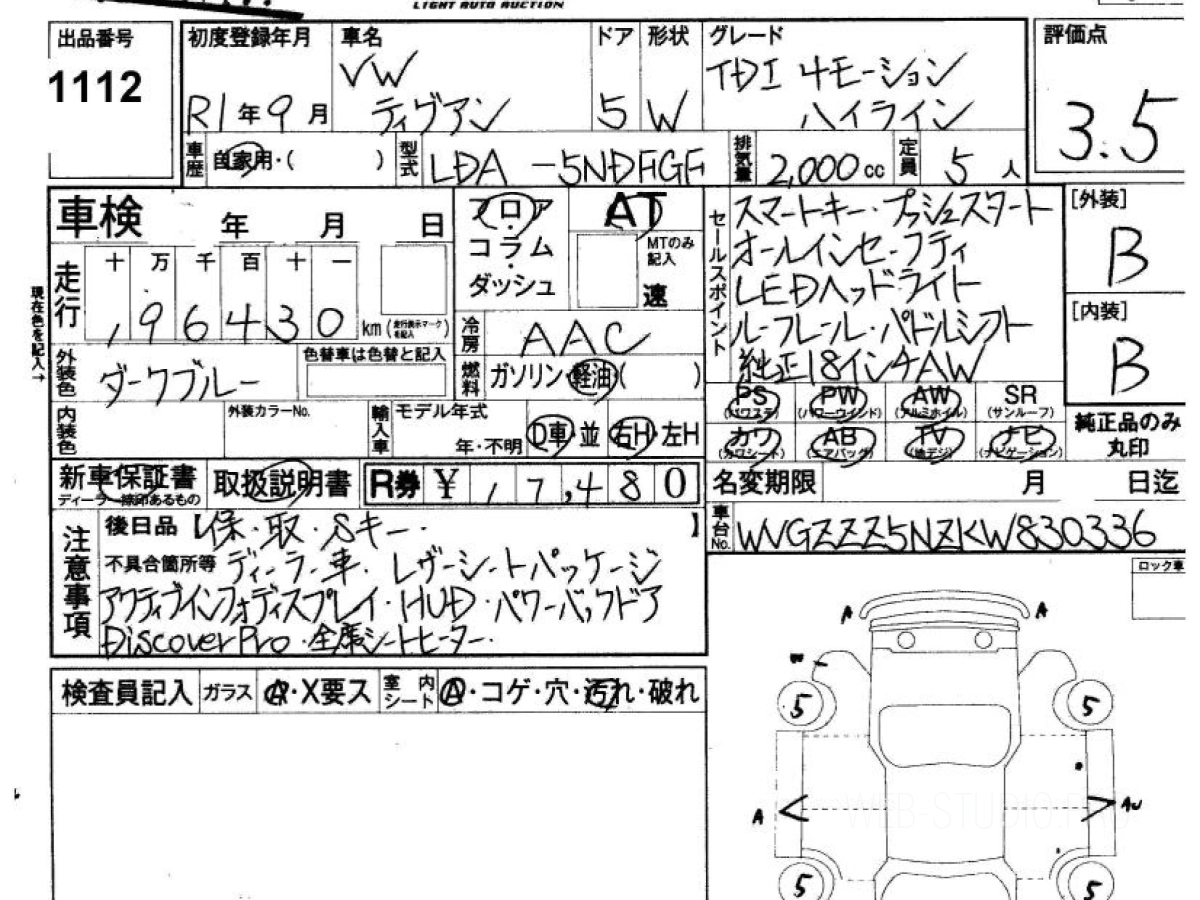 LIGHT AUTO AUCTION
出品番号
1112
初度登録年月
R1年9月
車名
VW
ティグアン
ドア
5
形状
W
グレード
TDI 4モーション
ハイライン
評価点
3.5
車歴 自家用・( )
型式 LDA-5NDFGF
排気量 2,000cc
定員 5人
車検 年 月 日
フロア
コラム
・
ダッシュ
AT
MTのみ記入
速
セールスポイント
スマートキー・プッシュスタート
オールインセーフティ
LEDヘッドライト
ルーフレール・パドルシフト
純正18インチAW
[外装]
B
[内装]
B
現在色を記入→
走行
十 万 千 百 十 一
,96430 km (走行表示マークを記入)
冷房 AAC
外装色 ダークブルー
色替車は色替と記入
燃料 ガソリン・軽油( )
内装色
外装カラーNo.
輸入車
モデル年式
年・不明
D車・並
右H・左H
PS (パワステ)
PW (パワーウインド)
AW (アルミホイル)
SR (サンルーフ)
カワ (カワシート)
AB (エアバック)
TV (地デジ)
ナビ (ナビゲーション)
純正品のみ
丸印
新車保証書
ディーラー捺印あるもの
取扱説明書
R券 ¥17,480
名変期限 月 日迄
車台No. WVGZZZ5NZKW830336
注意事項
後日品【保・取・Sキー. 】
不具合箇所等 ディーラー車. レザーシートパッケージ
アクティブインフォディスプレイ・HUD・パワーバックドア
Discover Pro・全席シートヒーター.
ロック車
検査員記入
ガラス
A・X要ス
室内シート
A・コゲ・穴・汚れ・破れ
A A
W
5 5
A AU
5 5
WEB-STUDIO.PRO